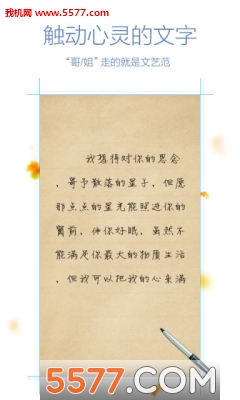 我机网
www.5577.com
触动心灵的文字
“哥/姐”走的就是文艺范
我想将对你的思念
，寄予散落的星子，但愿
那点点的星光能照进你的
窗前，伴你好眠，虽然不
能满足你最大的物质生活
，但我可以把我的心来满
5577.com